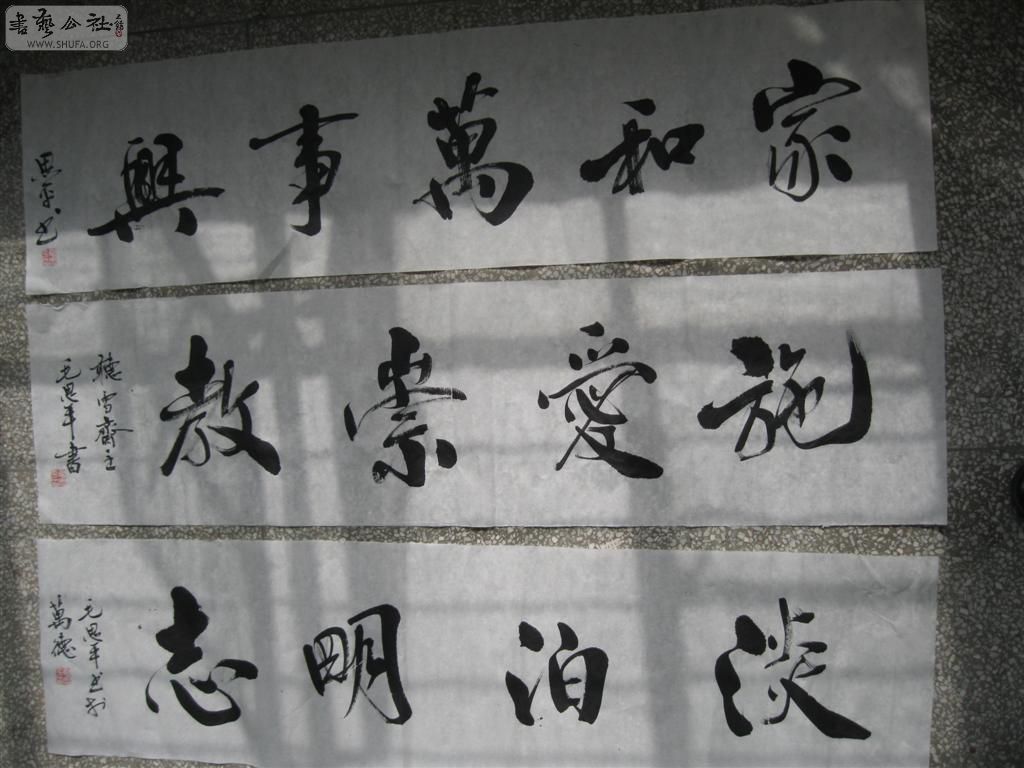 書藝公社
WWW.SHUFA.ORG
家和萬事興
思平书
施愛崇教
聽雪齋主
元思平書
淡泊明志
元思平书于
萬德